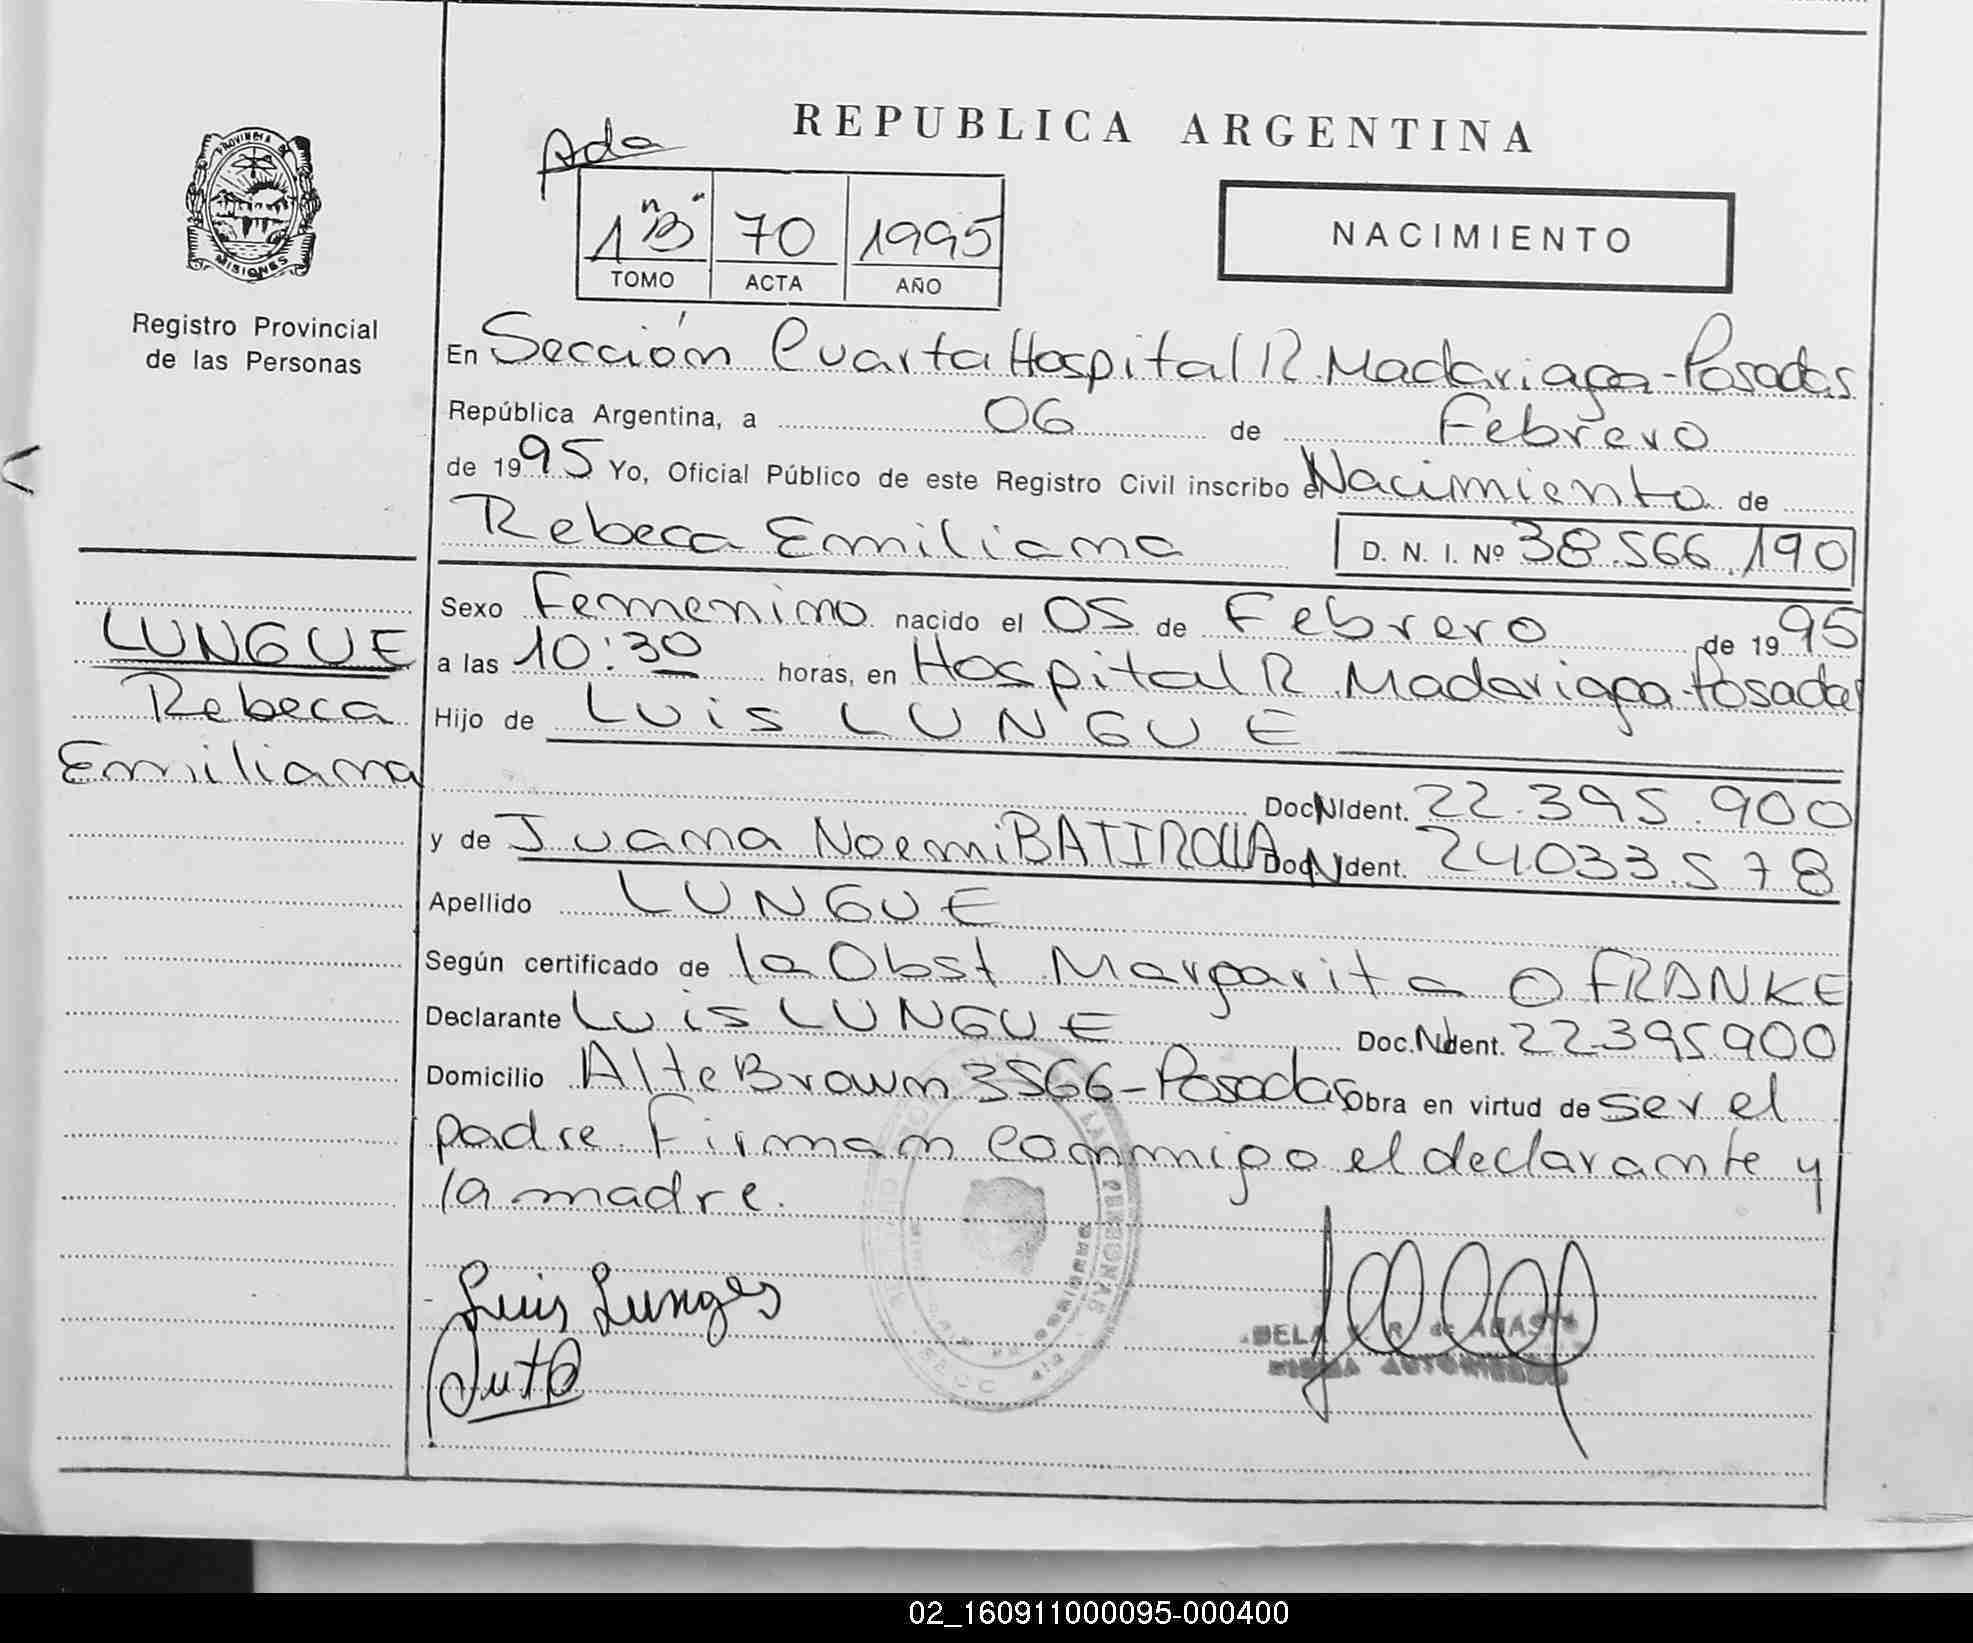 REPUBLICA ARGENTINA
Ada
1 "B" 70 1995
TOMO ACTA AÑO
NACIMIENTO
PROVINCIA DE
MISIONES
Registro Provincial
de las Personas
LUNGUE
Rebeca
Emiliana
En Sección Cuarta Hospital R. Madariaga - Posadas
República Argentina, a 06 de Febrero
de 1995 Yo, Oficial Público de este Registro Civil inscribo el Nacimiento de
Rebeca Emiliana D. N. I. Nº 38.566.190
Sexo Femenino nacido el 05 de Febrero de 1995
a las 10:30 horas, en Hospital R. Madariaga - Posadas
Hijo de Luis LUNGUE
Doc.N Ident. 22.395.900
y de Juana Noemi BATIROLLA Doc N Ident. 24.033.578
Apellido LUNGUE
Según certificado de la Obst Margarita O FRANKE
Declarante Luis LUNGUE Doc.N Ident. 22.395.900
Domicilio Alte Brown 3566 - Posadas Obra en virtud de ser el
padre. Firman conmigo el declarante y
la madre.
Luis
DE LAS PERSONAS